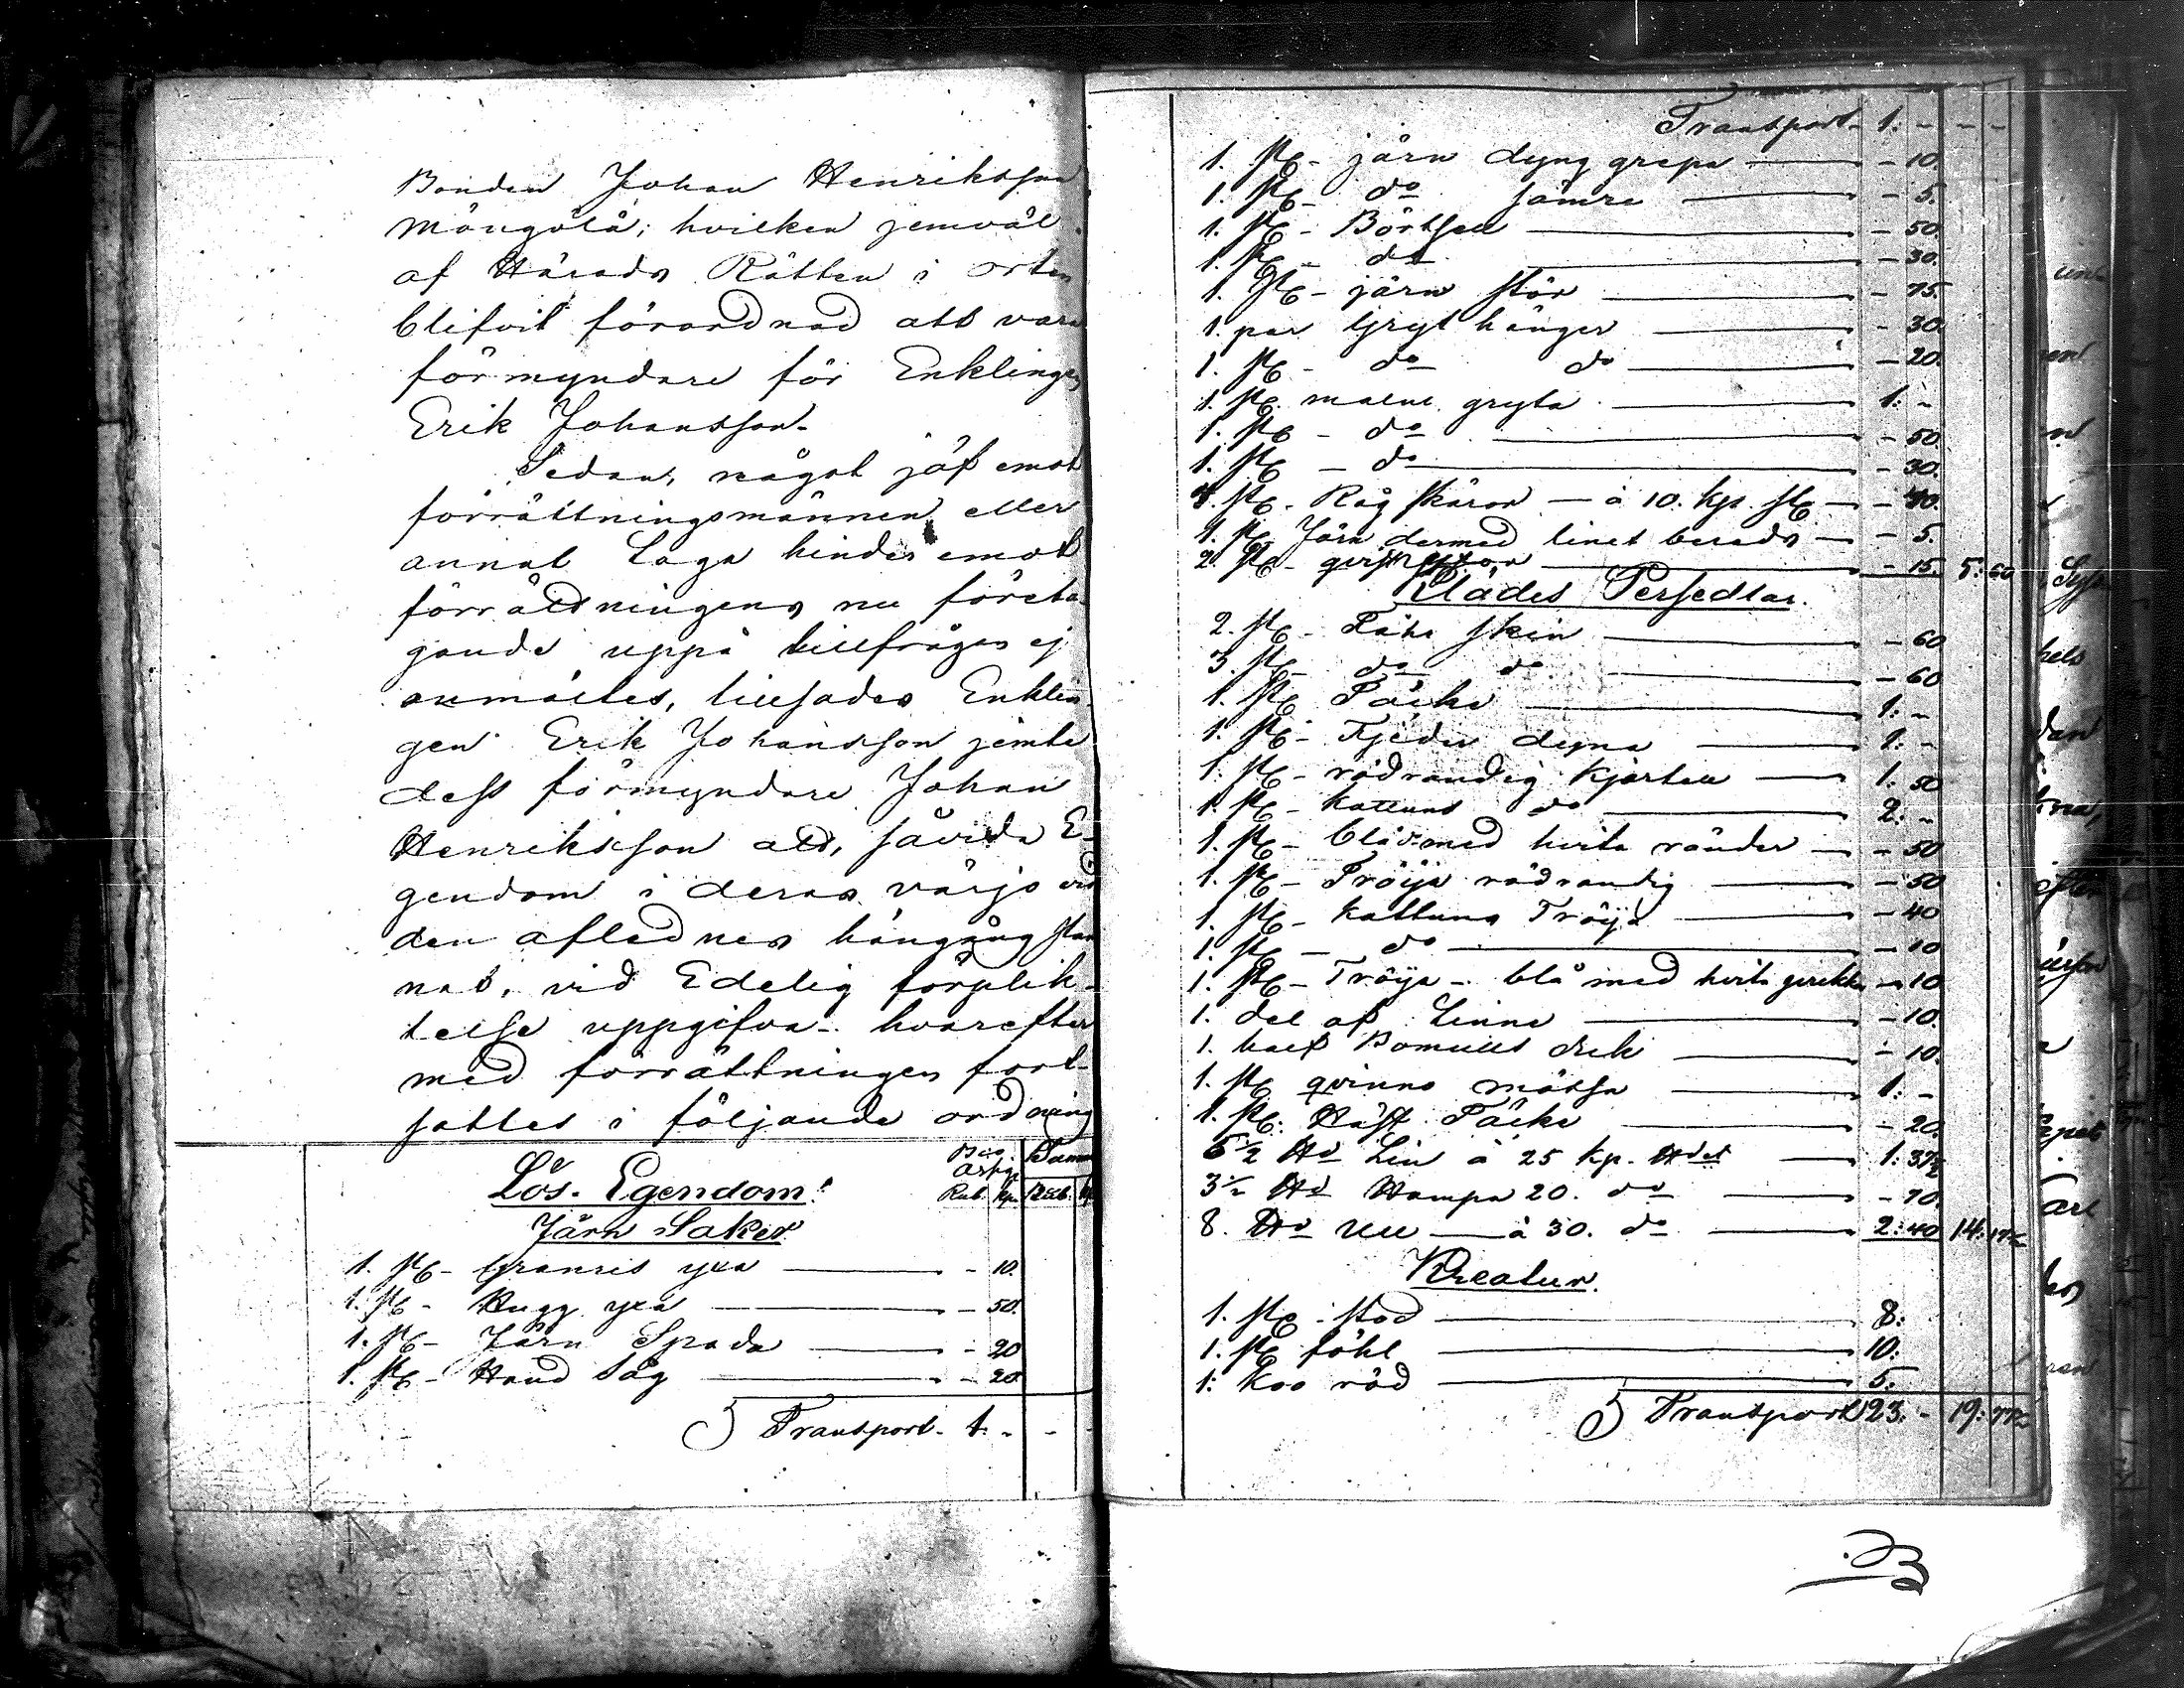 Bonden Johan Henriksson
Möngölä; hvilken jemväl
af Härads Rätten i orten
blifvit förordnad att vara
förmyndare för Enklingen
Erik Johansson.
Sedan, något jäf emot
förrättningsmännen eller
annat Laga hinder emot
förrättningens nu företa-
gande uppå tillfrågan ej
anmältes, tillsades Enklin-
gen Erik Johansson jemte
dess förmyndare Johan
Henriksson att, såvida E-
gendom i deras värjo vid
den aflednes hängång stan
nat, vid Edelig förplik-
telse uppgifva. hvarefter
med förrättningen fort-
sattes i följande ordning
Lös. Egendom:
Rub. kp. Rub.
Järn Saker
1. st - Granris yxa - 10.
1. st - Hugg yxa - 50.
1. st - Järn Spada - 20
1. st - Hand såg - 20
Transport. 1. - -
Transport - 1: - - -
1. st - järn dyng grepa - 10.
1. st - do sämre - 5.
1. st - - 50.
1. st - do - 30.
1. st - järn stör - 75.
1. par Gryt hänger - 30.
1. st - do do - 20.
1. st malm gryta 1: -
1. st - do - 50
1. st - do - 30.
4. st - Råg skäror - à 10. kp. st - 40.
1. st - Järn dermed linet bereds - 5.
2. st - - 15. 5: 60
Klädes Persedlar.
2. st - skin - 60
3. st - do do - 60
1. st Täcke 1: -
1. st - Fjeder dyna 1: -
1. st - rödrandig kjortel 1: 50
1. st - Kattuns do 2: -
1. st - blå med hvita ränder - 50
1. st - Tröja rödrandig - 50
1. st - kattuns Tröja - 40
1. st - do - 10
1. st - Tröja - blå med hvita - 10
1. del af Linne - 10.
1. half Bomulls duk - 10.
1. st qvinno mössa 1: -
1. st. Häst Täcke - 20.
5½ Lin à 25 kp. 1: 37½
3½ Hampa 20. do - 70.
8. Ull - à 30. do 2: 40 14: 17½
Kreatur.
1. st - stod 8:
1. st föhl 10:
1: Koo röd 5:
Transport 23: - 19: 77½